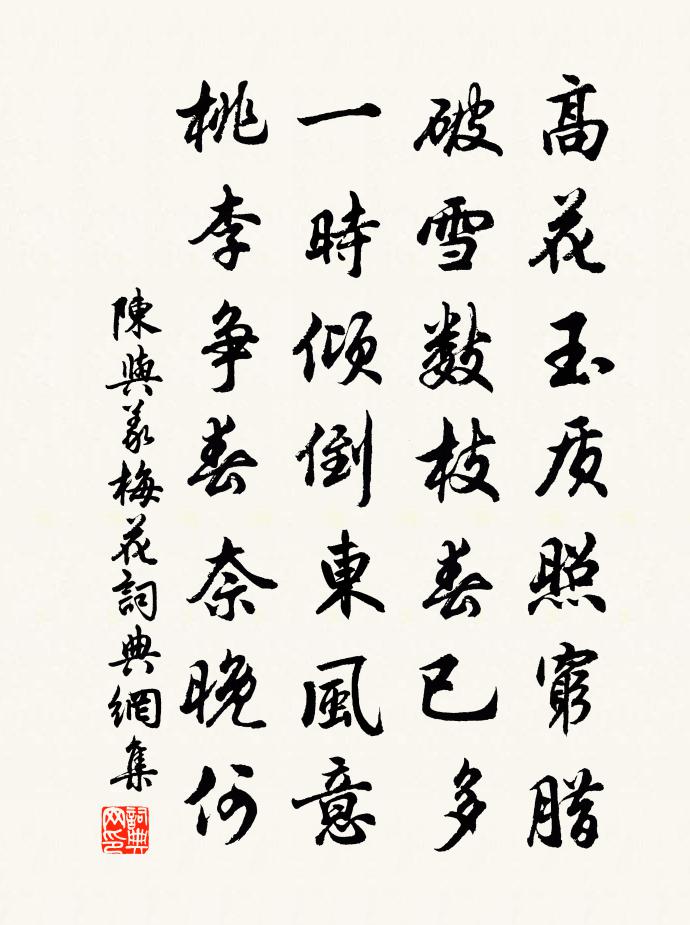 高花玉质照窮腊
破雪数枝春已多
一時傾倒東風意
桃李争春奈晚何
陳與義梅花詞典網集
詞典网印